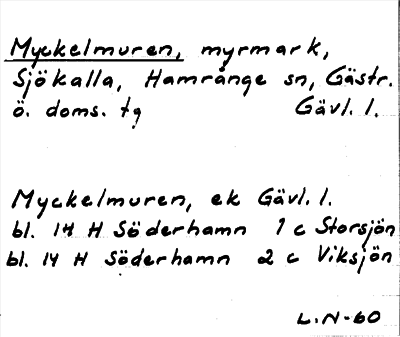 Myckelmuren, myrmark,
Sjökalla, Hamrånge sn, Gästr.
ö. doms. tg Gävl. l.
Myckelmuren, ek Gävl. l.
bl. 14 H Söderhamn 1 c Storsjön
bl. 14 H Söderhamn 2 c Viksjön
L.N-60